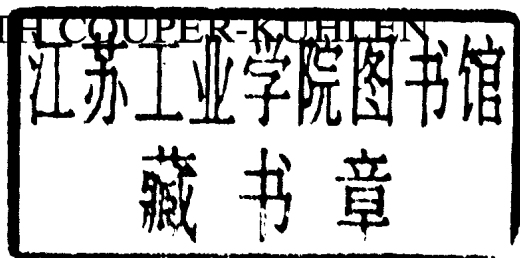 TH COUPER-KUHLEN
江苏工业学院图书馆
藏书章